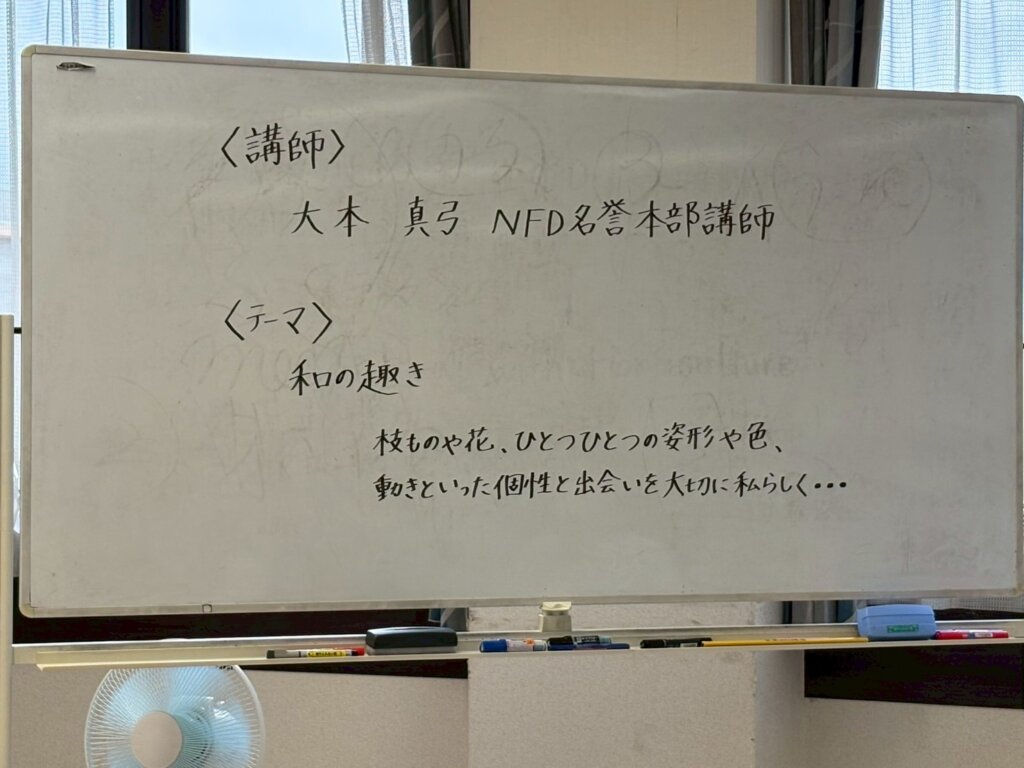 〈講師〉
大本 真弓 NFD名誉本部講師
〈テーマ〉
和の趣き
枝ものや花、ひとつひとつの姿形や色、
動きといった個性と出会いを大切に私らしく・・・